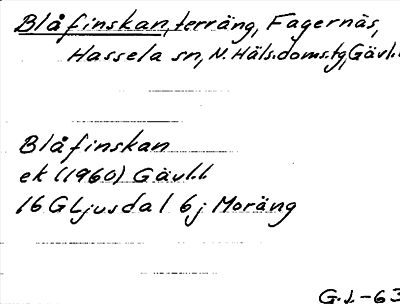 Blåfinskan, terräng, Fagernäs,
Hassela sn, N. Häls. doms.tg, Gävl.
Blåfinskan
ek (1960) Gävl.l
16 G Ljusdal 6j Moräng
G.J.-63